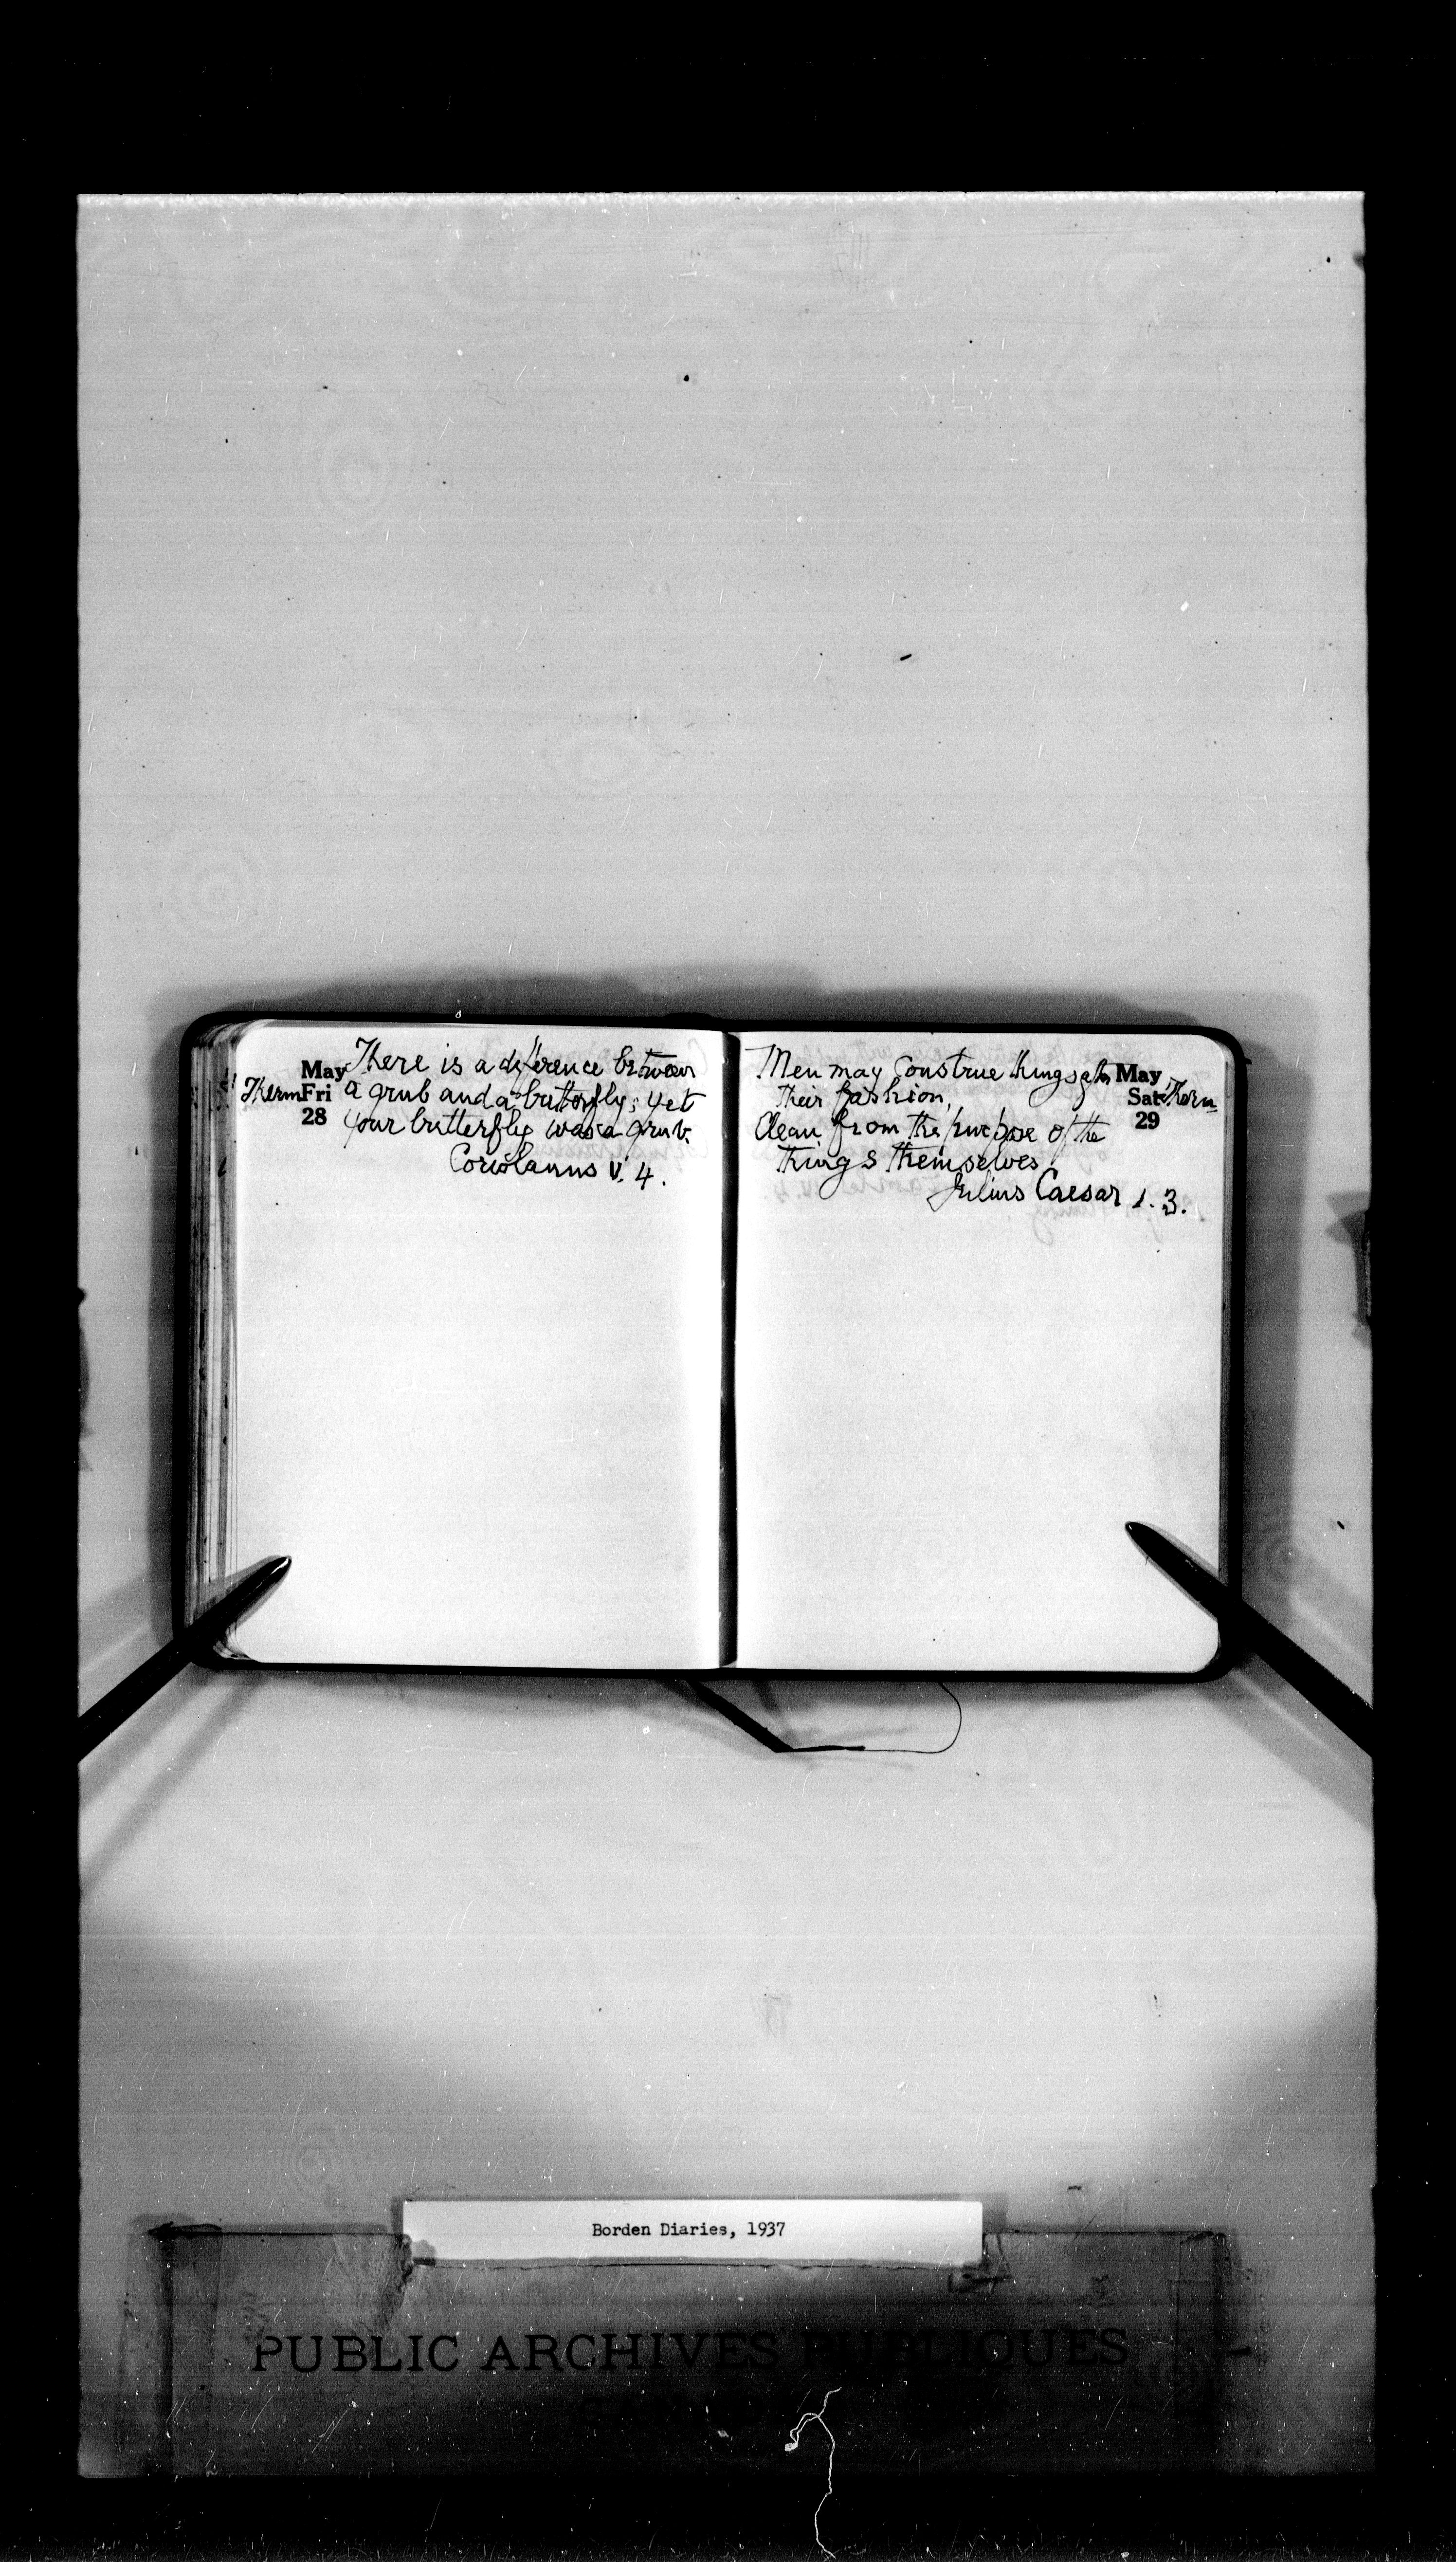 May
Therm Fri
28
There is a difference between
a grub and a butterfly; yet
your butterfly was a grub.
Coriolanus V. 4.
Men may construe things after
their fashion,
Clean from the purpose of the
things themselves.
Julius Caesar 1. 3.
May
Sat Therm
29
Borden Diaries, 1937
PUBLIC ARCHIVES PUBLIQUES